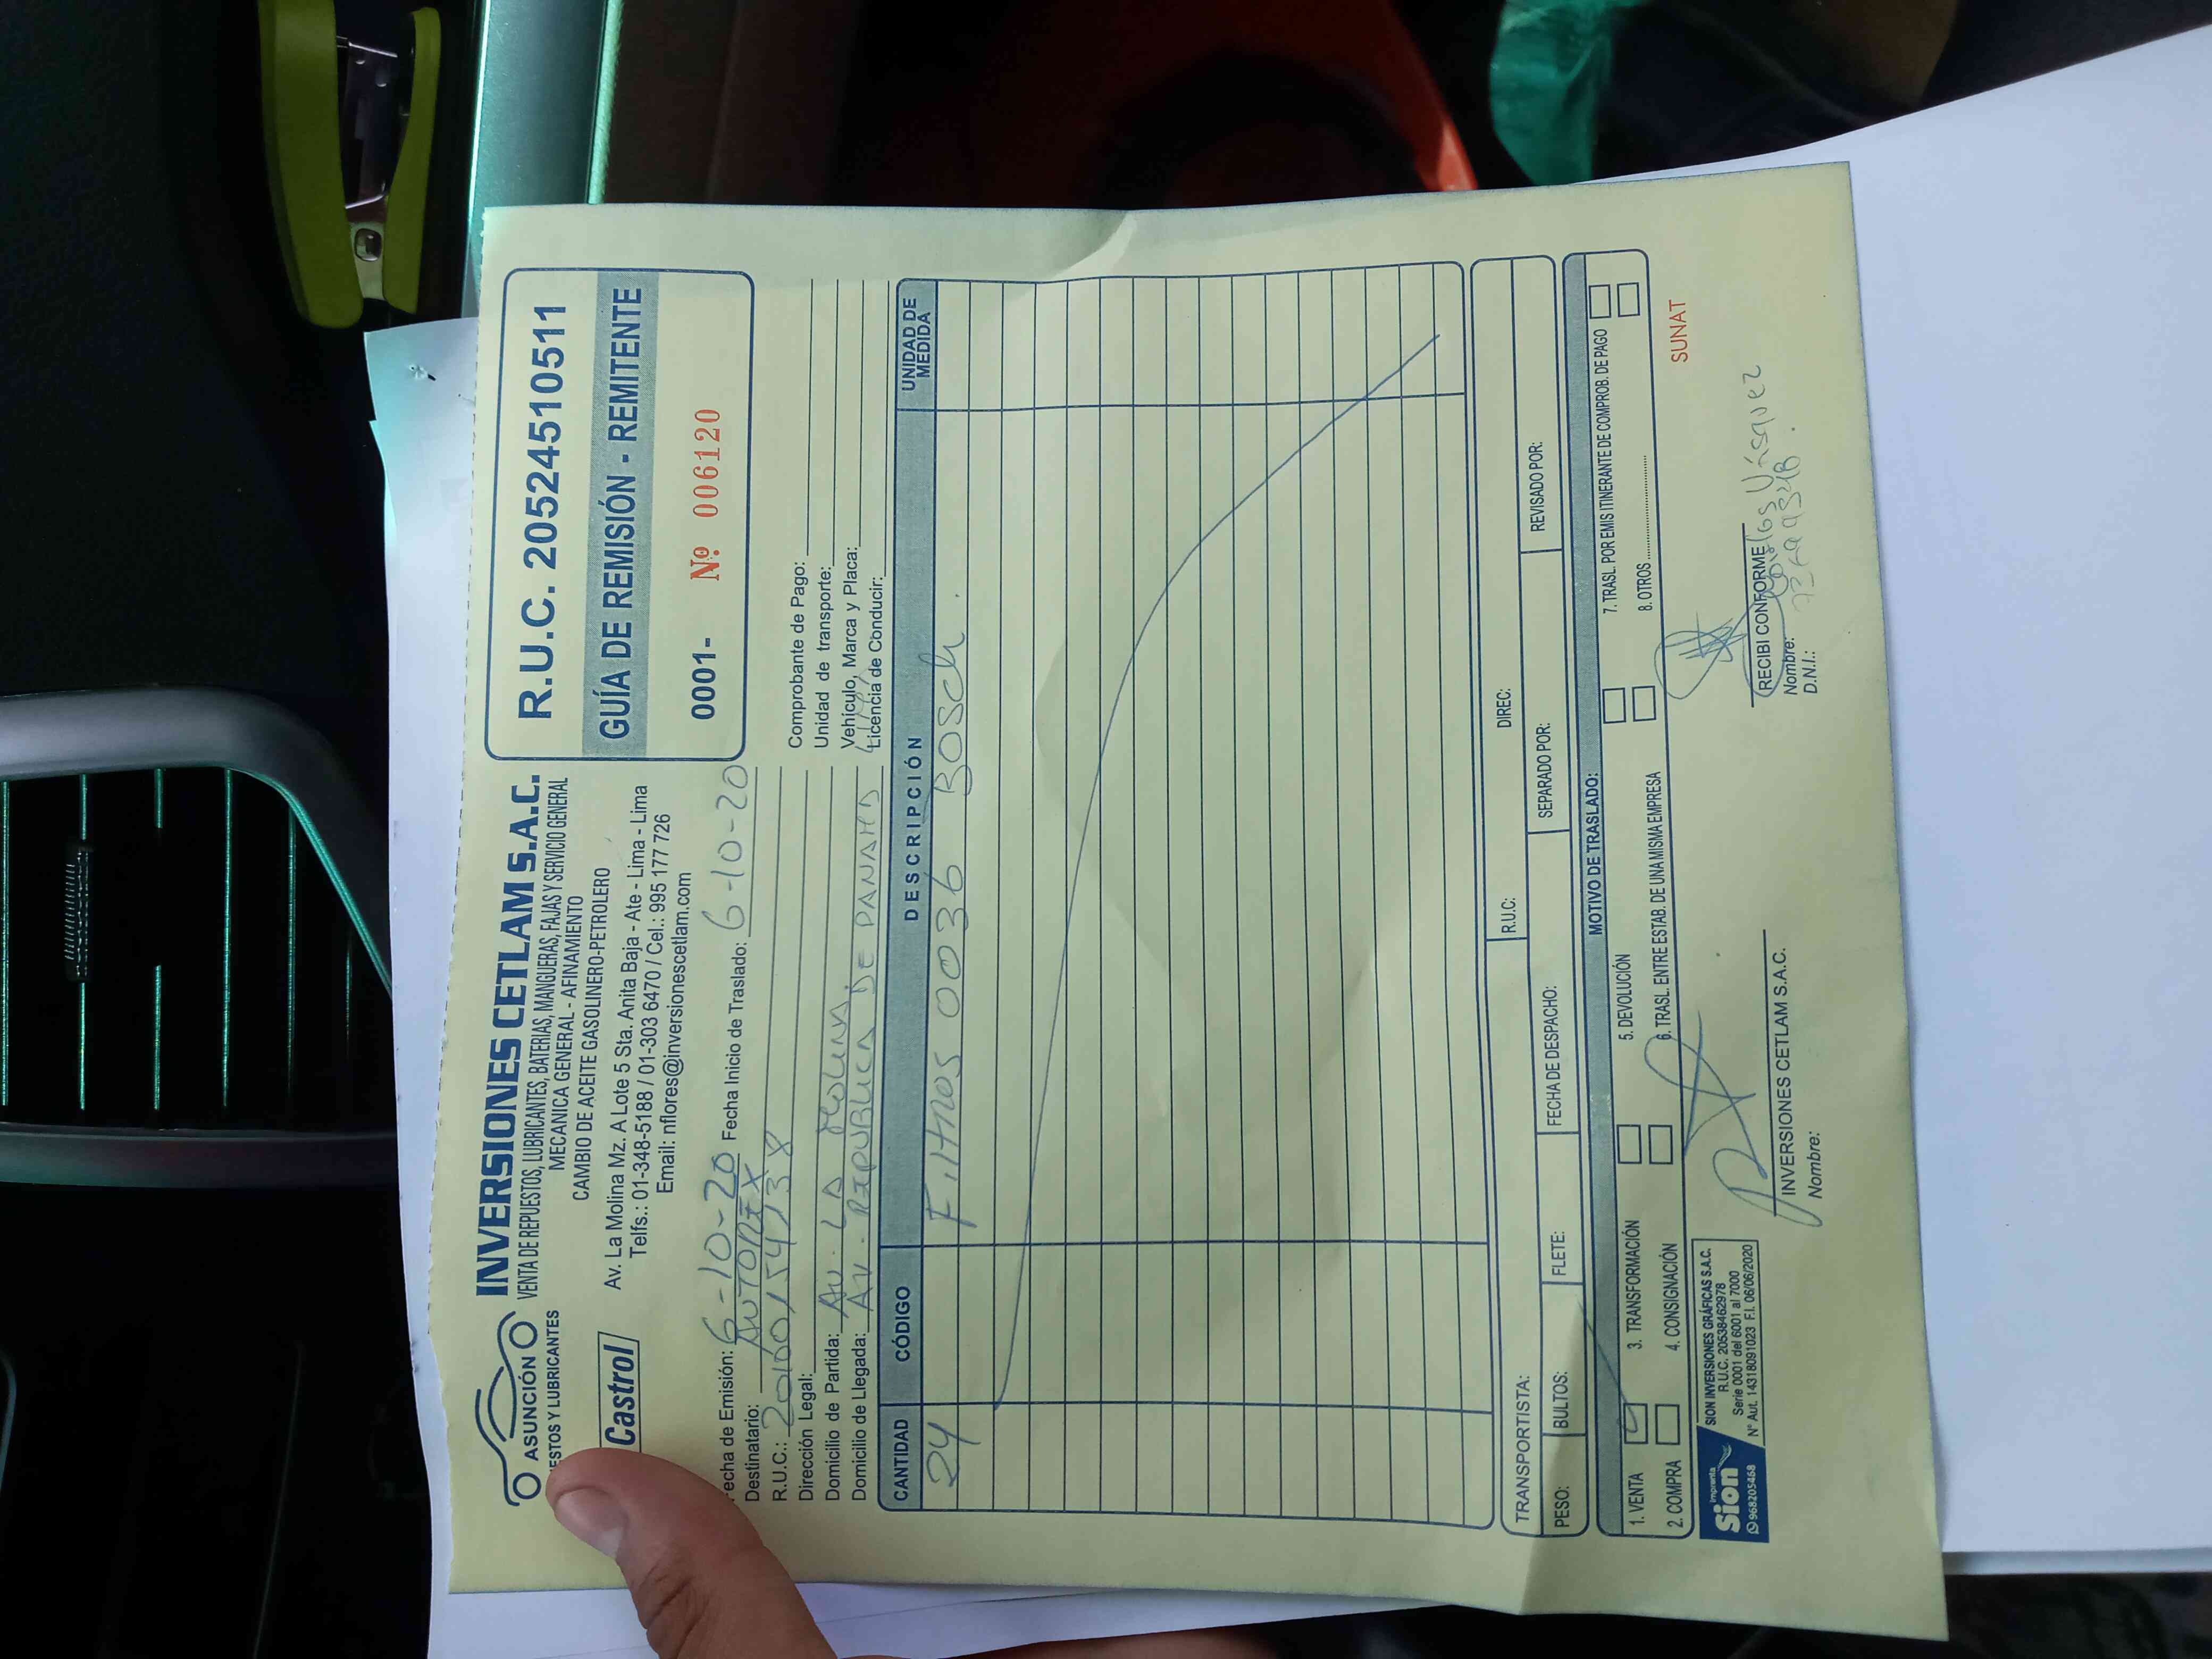 ASUNCIÓN
ESTOS Y LUBRICANTES
Castrol
INVERSIONES CETLAM S.A.C.
VENTA DE REPUESTOS, LUBRICANTES, BATERIAS, MANGUERAS, FAJAS Y SERVICIO GENERAL
MECANICA GENERAL - AFINAMIENTO
CAMBIO DE ACEITE GASOLINERO-PETROLERO
Av. La Molina Mz. A Lote 5 Sta. Anita Baja - Ate - Lima - Lima
Telfs.: 01-348-5188 / 01-303 6470 / Cel.: 995 177 726
Email: nflores@inversionescetlam.com
R.U.C. 20524510511
GUÍA DE REMISIÓN - REMITENTE
0001- Nº 006120
Fecha de Emisión: 6-10-20 Fecha Inicio de Traslado: 6-10-20
Destinatario: AUTOREX
R.U.C.: 20100154138
Dirección Legal:
Domicilio de Partida: AV. LA MOLINA.
Domicilio de Llegada: AV. REPUBLICA DE PANAMA LIMA
Comprobante de Pago:
Unidad de transporte:
Vehículo, Marca y Placa:
Licencia de Conducir:
CANTIDAD CÓDIGO DESCRIPCIÓN UNIDAD DE MEDIDA
24 Filtros 0036 Bosch.
TRANSPORTISTA: R.U.C: DIREC:
PESO: BULTOS: FLETE: FECHA DE DESPACHO: SEPARADO POR: REVISADO POR:
MOTIVO DE TRASLADO:
1. VENTA 3. TRANSFORMACIÓN 5. DEVOLUCIÓN 7. TRASL. POR EMIS ITINERANTE DE COMPROB. DE PAGO
2. COMPRA 4. CONSIGNACIÓN 6. TRASL. ENTRE ESTAB. DE UNA MISMA EMPRESA 8. OTROS
SUNAT
imprenta
Sion
968205468
SION INVERSIONES GRÁFICAS S.A.C.
R.U.C. 20538462978
Serie 0001 del 6001 al 7000
N° Aut. 14318091023 F.I. 06/06/2020
INVERSIONES CETLAM S.A.C.
Nombre:
RECIBI CONFORME
Nombre: Carlos Vásquez
D.N.I.: